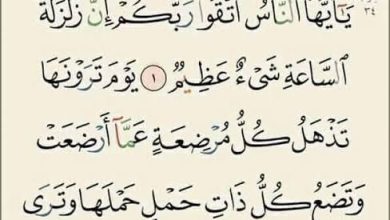 ٣٤
يَٰٓأَيُّهَا ٱلنَّاسُ ٱتَّقُوا۟ رَبَّكُمْ إِنَّ زَلْزَلَةَ
ٱلسَّاعَةِ شَىْءٌ عَظِيمٌ ١ يَوْمَ تَرَوْنَهَا
تَذْهَلُ كُلُّ مُرْضِعَةٍ عَمَّآ أَرْضَعَتْ
وَتَضَعُ كُلُّ ذَاتِ حَمْلٍ حَمْلَهَا وَتَرَى